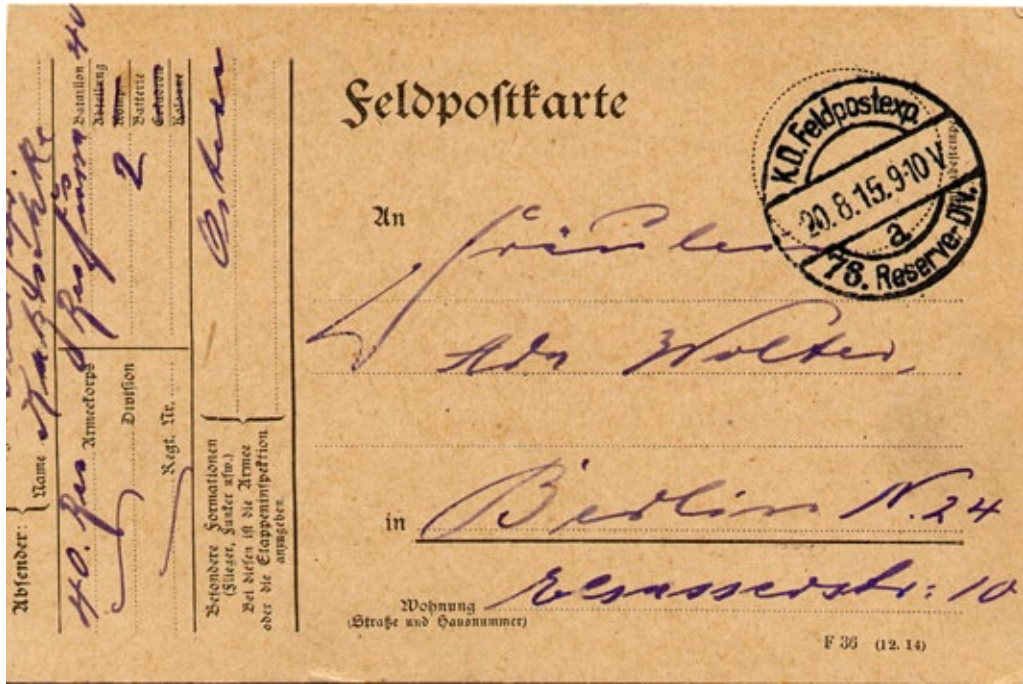 Feldpostkarte
K.D. Feldpostexp.
20.8.15. 9-10 V
a
76. Reserve-Div.
An
Fräulein
Ada Wolter,
in Berlin N. 24
Wohnung
(Straße und Hausnummer)
Elsasserstr: 10
F 36 (12. 14)
Absender:
Name
40. Res Armeekorps
Division
Regt. Nr.
Bataillon 40
Abteilung
Komp.
Batterie 2
Eskadron
Kolonne
Osten
Besondere Formationen
(Flieger, Funker usw.)
Bei diesen ist die Armee
oder die Etappeninspektion
anzugeben.